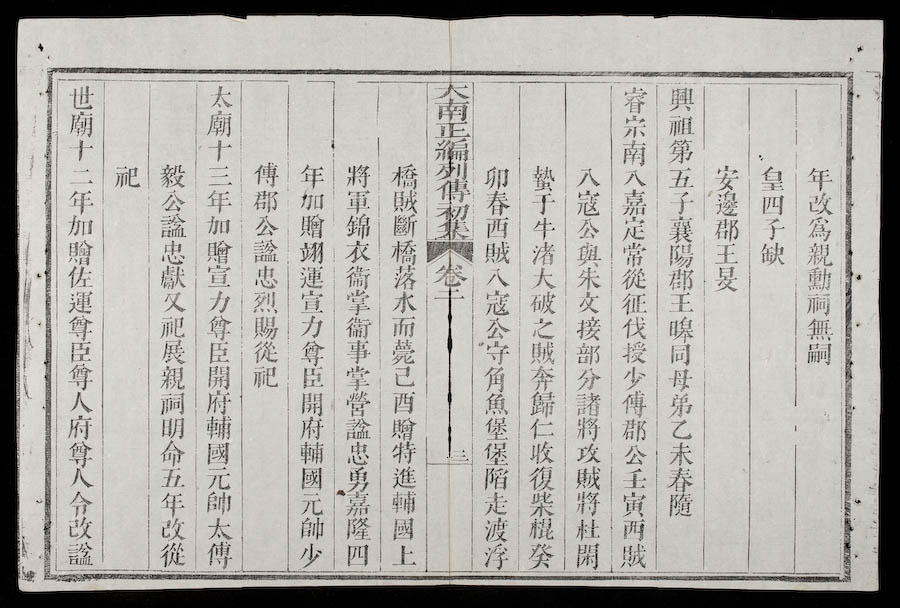 年改爲親勳祠無嗣
皇四子缺
安邊郡王旻
興祖第五子襄陽郡王暭同母弟乙未春隨
睿宗南入嘉定常從征伐授少傅郡公壬寅西賊
入寇公與朱文接部分諸將攻賊將杜閑
蟄于牛渚大破之賊奔歸仁收復柴棍癸
卯春西賊入寇公守角魚堡堡陷走渡浮
大南正編列傳初集
卷二
三
橋賊斷橋落水而薨己酉贈特進輔國上
將軍錦衣衞掌衞事掌營諡忠勇嘉隆四
年加贈翊運宣力尊臣開府輔國元帥少
傅郡公諡忠烈賜從祀
太廟十三年加贈宣力尊臣開府輔國元帥太傅
毅公諡忠獻又祀展親祠明命五年改從
祀
世廟十二年加贈佐運尊臣尊人府尊人令改諡